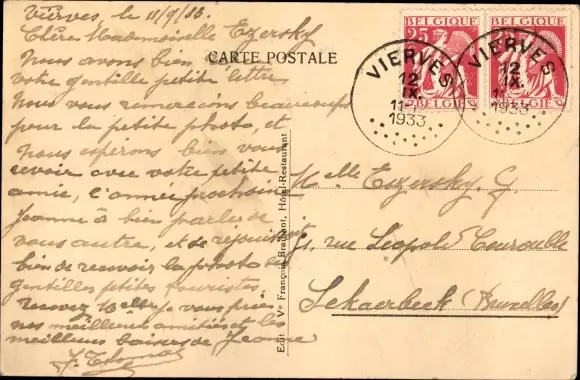 Vierves, le 11/9/33.
Chère Mademoiselle Ezersky
Nous avons bien
votre gentille petite lettre
Nous vous remercions beaucoup
pour la petite photo, et
nous espérons bien vous
revoir avec votre petite
amie, l'année prochaine
Jeanne à bien parler de
vous autre, et de
bien de recevoir la photo des
gentilles petites touristes.
recevez Melle je vous pries
nos meilleurs amitiés et les
meilleurs baisers de Jeanne
CARTE POSTALE
BELGIQUE BELGIQUE
25
BELGIE BELGIE
VIERVES
12
IX
11
1933
VIERVES
12
IX
1933
Edit. : Vve François Brasfiant, Hôtel-Restaurant
Melle Ezersky. G
rue Léopold Courouble
Sckaerbeeck (Bruxelles)